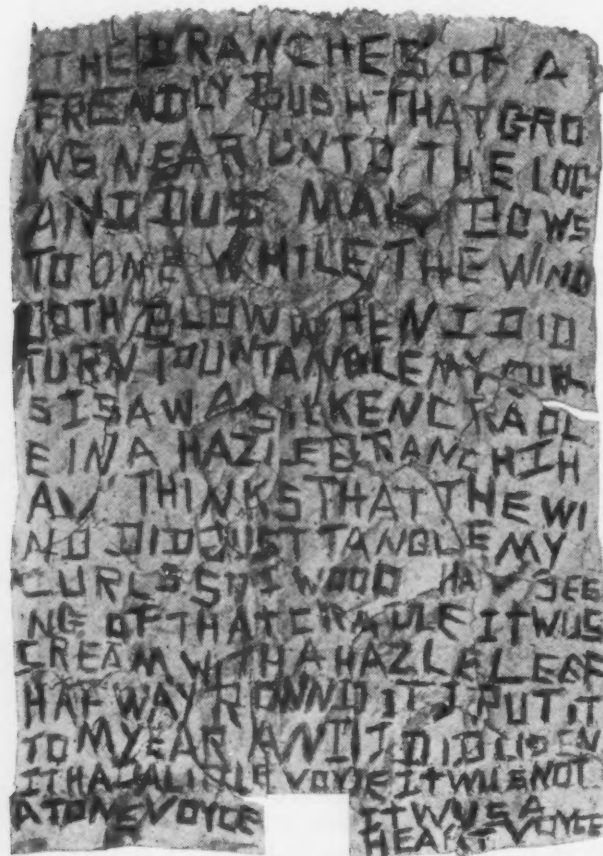 THE BRANCHES OF A
FRENDLY BUSH THAT GRO
WS NEAR UNTO THE LOG
AND DUS MAK BOWS
TO ONE WHILE THE WIND
DOTH BLOW WHEN I DID
TURN TO UNTANGLE MY CURL
S I SAW A SILKEN CRADL
E IN A HAZLE BRANCH I H
AV THINKS THAT THE WI
ND DID JUST TANGLE MY
CURLS SO I WOOD HAV SEE
NG OF THAT CRADLE IT WUS
CREAM WITH A HAZLE LEAF
HAF WAY ROWND IT I PUT IT
TO MY EAR AND I DID LISEN
IT HAD A LITTLE VOYCE IT WUS NOT
A TONE VOYCE IT WUS A
HEART VOYCE